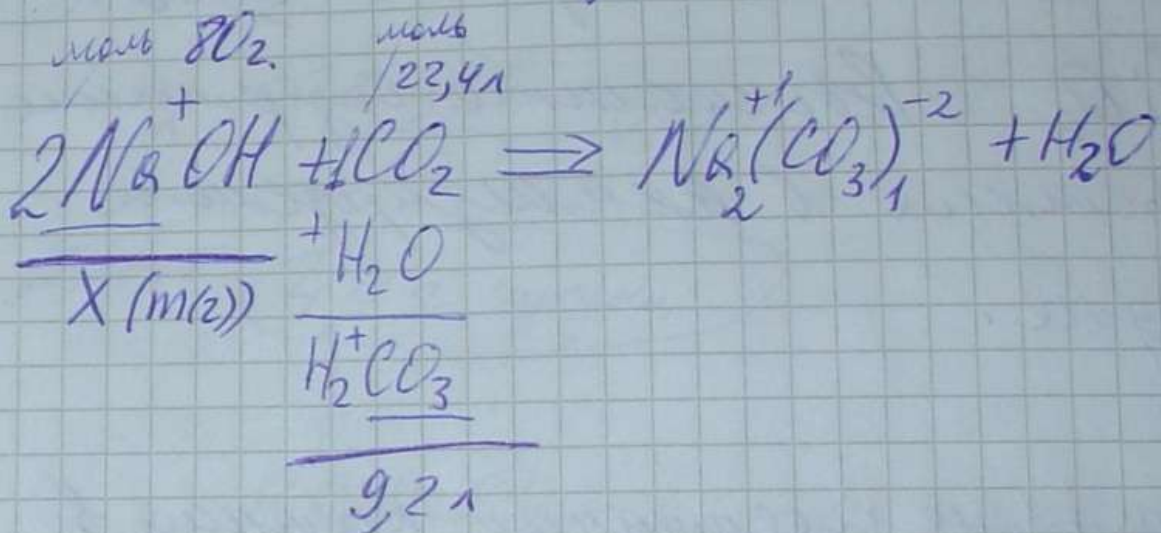 моль 80 г. моль
/22,4 л
2Na⁺OH + 1CO₂ ⟹ Na₂⁺¹(CO₃)₁⁻² + H₂O
+H₂O
X (m(г))
H₂⁺CO₃
9,2 л